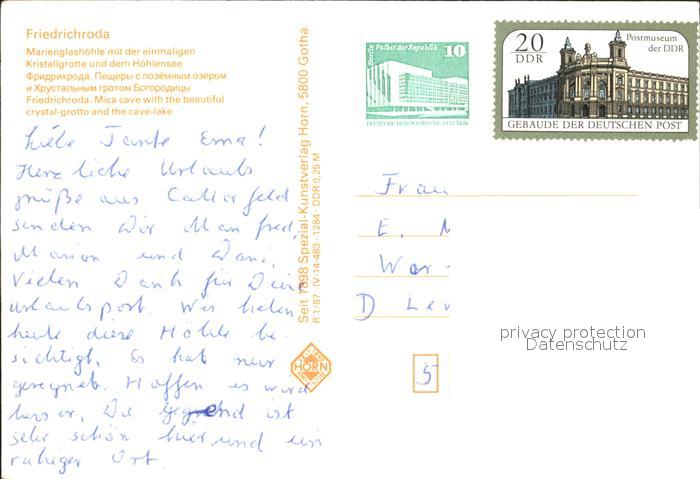 Friedrichroda
Marienglashöhle mit der einmaligen
Kristallgrotte und dem Höhlensee
Фридрихрода. Пещеры с позёмным озером
и Хрустальным гротом Богородицы
Friedrichroda. Mica cave with the beautiful
crystal-grotto and the cave-lake
Liebe Tante Erna!
Herzliche Urlaubs
grüße aus Catterfeld
senden Dir Manfred,
Marion und Dani.
Vielen Dank für Deine
Urlaubspost. Wir haben
heute diese Höhle be-
sichtigt. Es hat nur
geregnet. Hoffen es wird
besser. Die Gegend ist
sehr schön hier und ein
ruhiger Ort.
Seit 1898 Spezial-Kunstverlag Horn, 5800 Gotha
R 1/87 IV-14-483 · 1284 · DDR 0,25 M
HORN
Berlin Palast der Republik 10
DEUTSCHE DEMOKRATISCHE REPUBLIK
20
DDR
Postmuseum
der DDR
GEBÄUDE DER DEUTSCHEN POST
Frau
E.
D
5
privacy protection
Datenschutz